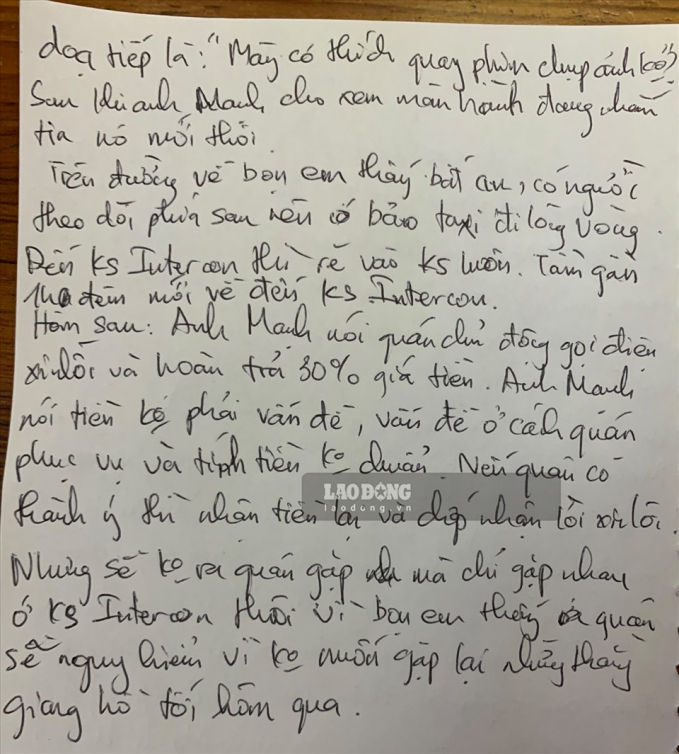 doạ tiếp là: "Mày có thích quay phim chụp ảnh ko"
Sau khi anh Mạnh cho xem màn hành đang nhắn
tin nó mới thôi.
Trên đường về bọn em thấy bất an, có người
theo dõi phía sau nên cố bảo taxi đi lòng vòng.
Đến KS Intercon thì rẽ vào KS luôn. Tầm gần
đêm mới về đến KS Intercon.
Hôm sau: Anh Mạnh nói quán chủ động gọi điện
xin lỗi và hoàn trả 30% giá tiền. Anh Mạnh
nói tiền ko phải vấn đề, vấn đề ở cách quán
phục vụ và tính tiền ko chuẩn. Nếu quán có
LAO ĐỘNG
laodong.vn
thành ý thì nhận tiền lại và chấp nhận lời xin lỗi.
Nhưng sẽ ko ra quán gặp mà chỉ gặp nhau
ở KS Intercon thôi vì bọn em thấy quán
sẽ nguy hiểm vì ko muốn gặp lại những thằng
giang hồ tối hôm qua.